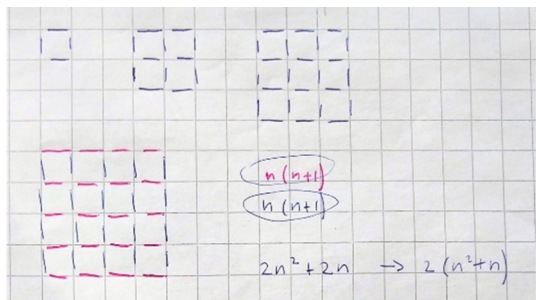 n (n+1)
n (n+1)
2n² + 2n → 2 (n²+n)